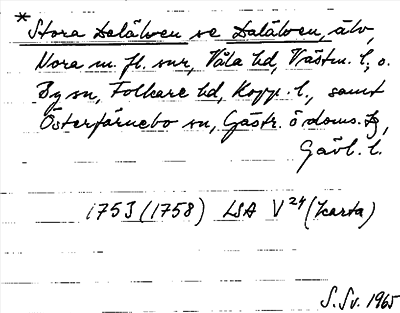 * Stora Dalälven se Dalälven, älv,
Nora m. fl. snr, Våla hd, Västm. l., o.
By sn, Folkare hd, Kopp. l., samt
Österfärnebo sn, Gästr. ö doms.
Gävl. l.
1753 (1758) LSA V 24 (karta)
S. Sv. 1965